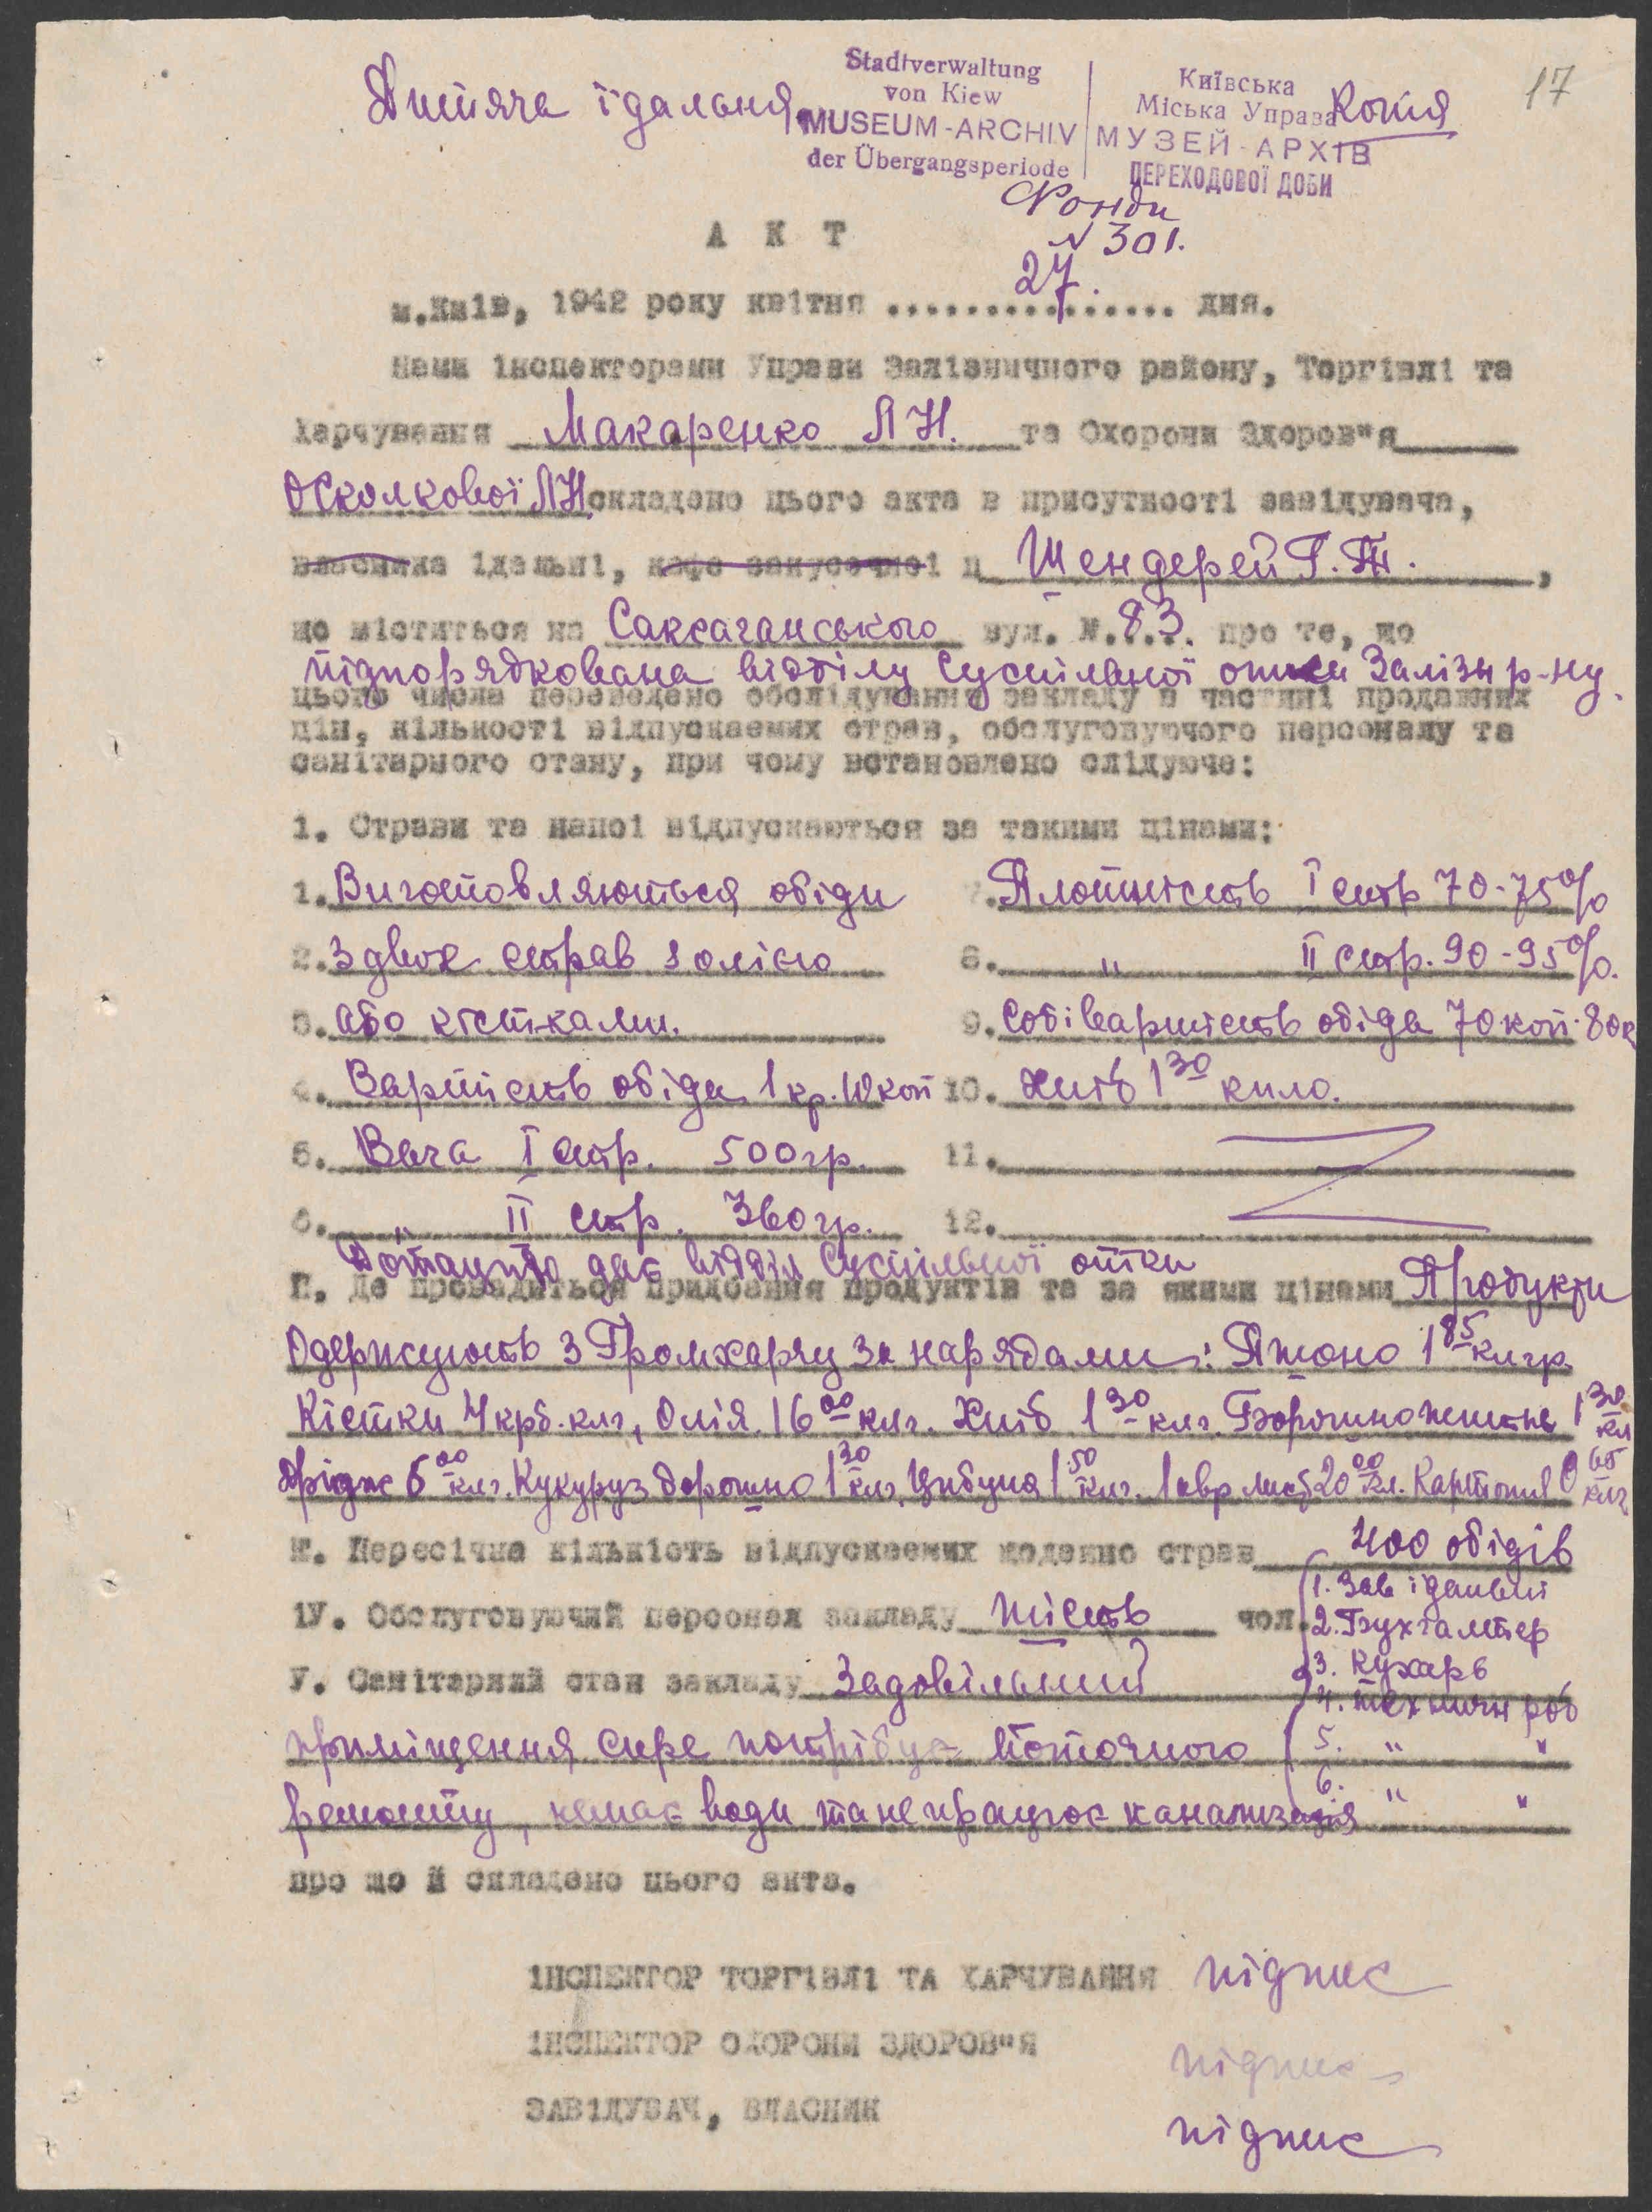 Дитяча їдальня
Stadtverwaltung
von Kiew
MUSEUM-ARCHIV
der Übergangsperiode
Київська
Міська Управа
МУЗЕЙ-АРХІВ
ПЕРЕХОДОВОЇ ДОБИ
Копія
17
Фонди
N 301.
А К Т
м.Київ, 1942 року квітня ....27.... дня.
Нами інспекторами Управи Залізничного району, Торгівлі та
Харчування Макаренко Л Н. та Охорони Здоров"я
Осколкової Л Н. складено цього акта в присутності завідувача,
власника їдальні, кафе закусочної ц Шендерей Г. Т.,
що міститься на Саксаганського вул. N. 83. про те, що
підпорядкована відділу Суспільної опіки Залізн р-ну.
цього числа переведено обслідування закладу в частині продажних
цін, кількості відпускаемих страв, обслуговуючого персоналу та
санітарного стану, при чому встановлено слідуюче:
1. Страви та напої відпускаються за такими цінами:
1. Виготовляються обіди
2. З двох страв з олією
3. або кістками.
4. Вартість обіда 1 кр. 10 коп
5. Вага І стр. 500 гр.
6. " ІІ стр. 360 гр.
7. Плотність І стр 70-75%
8. " ІІ стр. 90-95%.
9. Собівартість обіда 70 коп-80к
10. Хліб 1 30 кило.
11.
12.
Дотацію дає відділ Суспільної опіки
П. Де провадиться придбання продуктів та за якими цінами Продукти
Одержують з Громхарчу за нарядами: Пшоно 1 85 клгр.
Кістки 4 крб. клг, Олія 16 00 клг. Хліб 1 30 клг. Борошно житнє 1 30 кл
Дріжж 6 00 клг. Кукуруз борошно 1 30 клг. Цибуля 1 50 клг. лавр лист 20 00 кл. Картопля 0 65 клг
Ш. Пересічна кількість відпускаемих щоденно страв 400 обідів
1У. Обслуговуючий персонал закладу шість чол.
1. Зав їдальні
2. Бухгалтер
3. Кухарь
4. технічн роб
5. " "
6. " "
У. Санітарний стан закладу Задовільний
приміщення сире потрібує поточного
ремонту, немає води та не працює каналізація
про що й складено цього акта.
ІНСПЕКТОР ТОРГІВЛІ ТА ХАРЧУВАННЯ підпис
ІНСПЕКТОР ОХОРОНИ ЗДОРОВ"Я підпис
ЗАВІДУВАЧ, ВЛАСНИК підпис